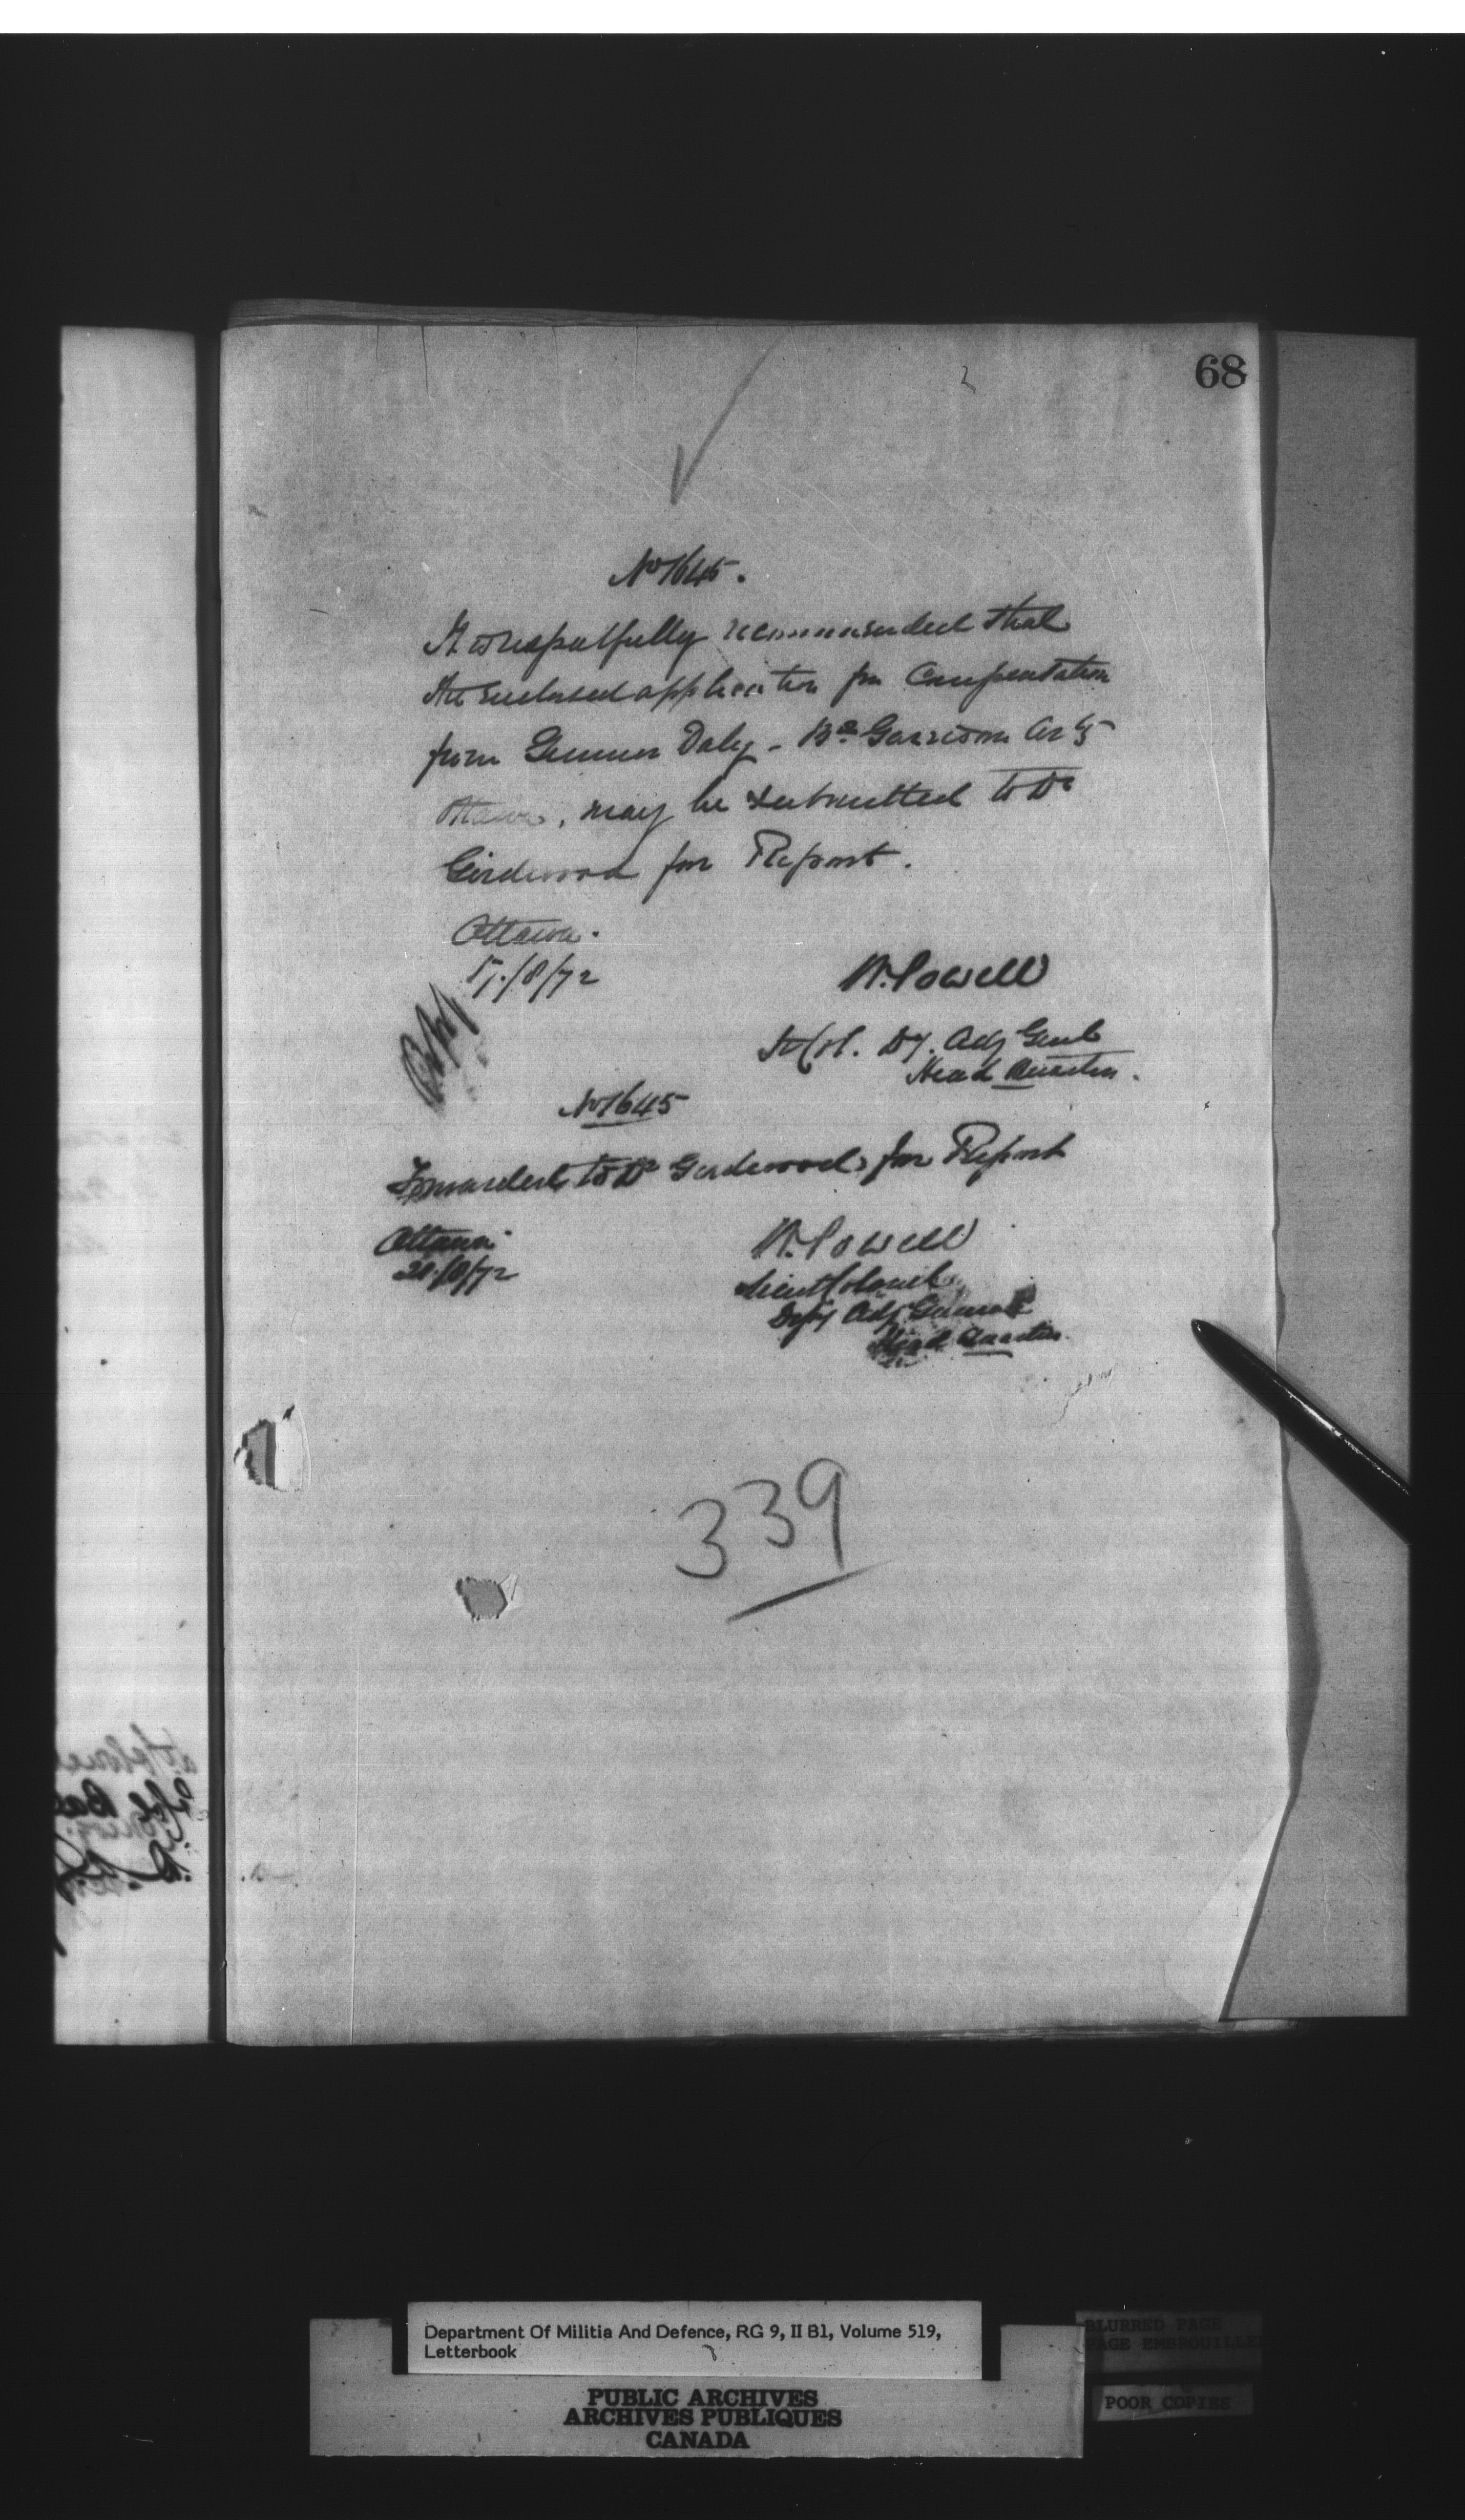 68
No 1645.
It is respectfully recommended that
the enclosed application for Compensation
from Gunner Daly - Bde Garrison Arty
Ottawa, may be submitted to Dr
Girdwood for Report.
Ottawa.
17/8/72
W. Powell
Lt Col. Dy. Adj Genl
Head Quarters.
No 1645
Forwarded to Dr Girdwood for Report
Ottawa
20/8/72
W. Powell
Lieut Colonel
Depy Adj General
Head Quarters
339
Department Of Militia And Defence, RG 9, II B1, Volume 519,
Letterbook
PUBLIC ARCHIVES
ARCHIVES PUBLIQUES
CANADA
BLURRED PAGE
PAGE EMBROUILLEE
POOR COPIES